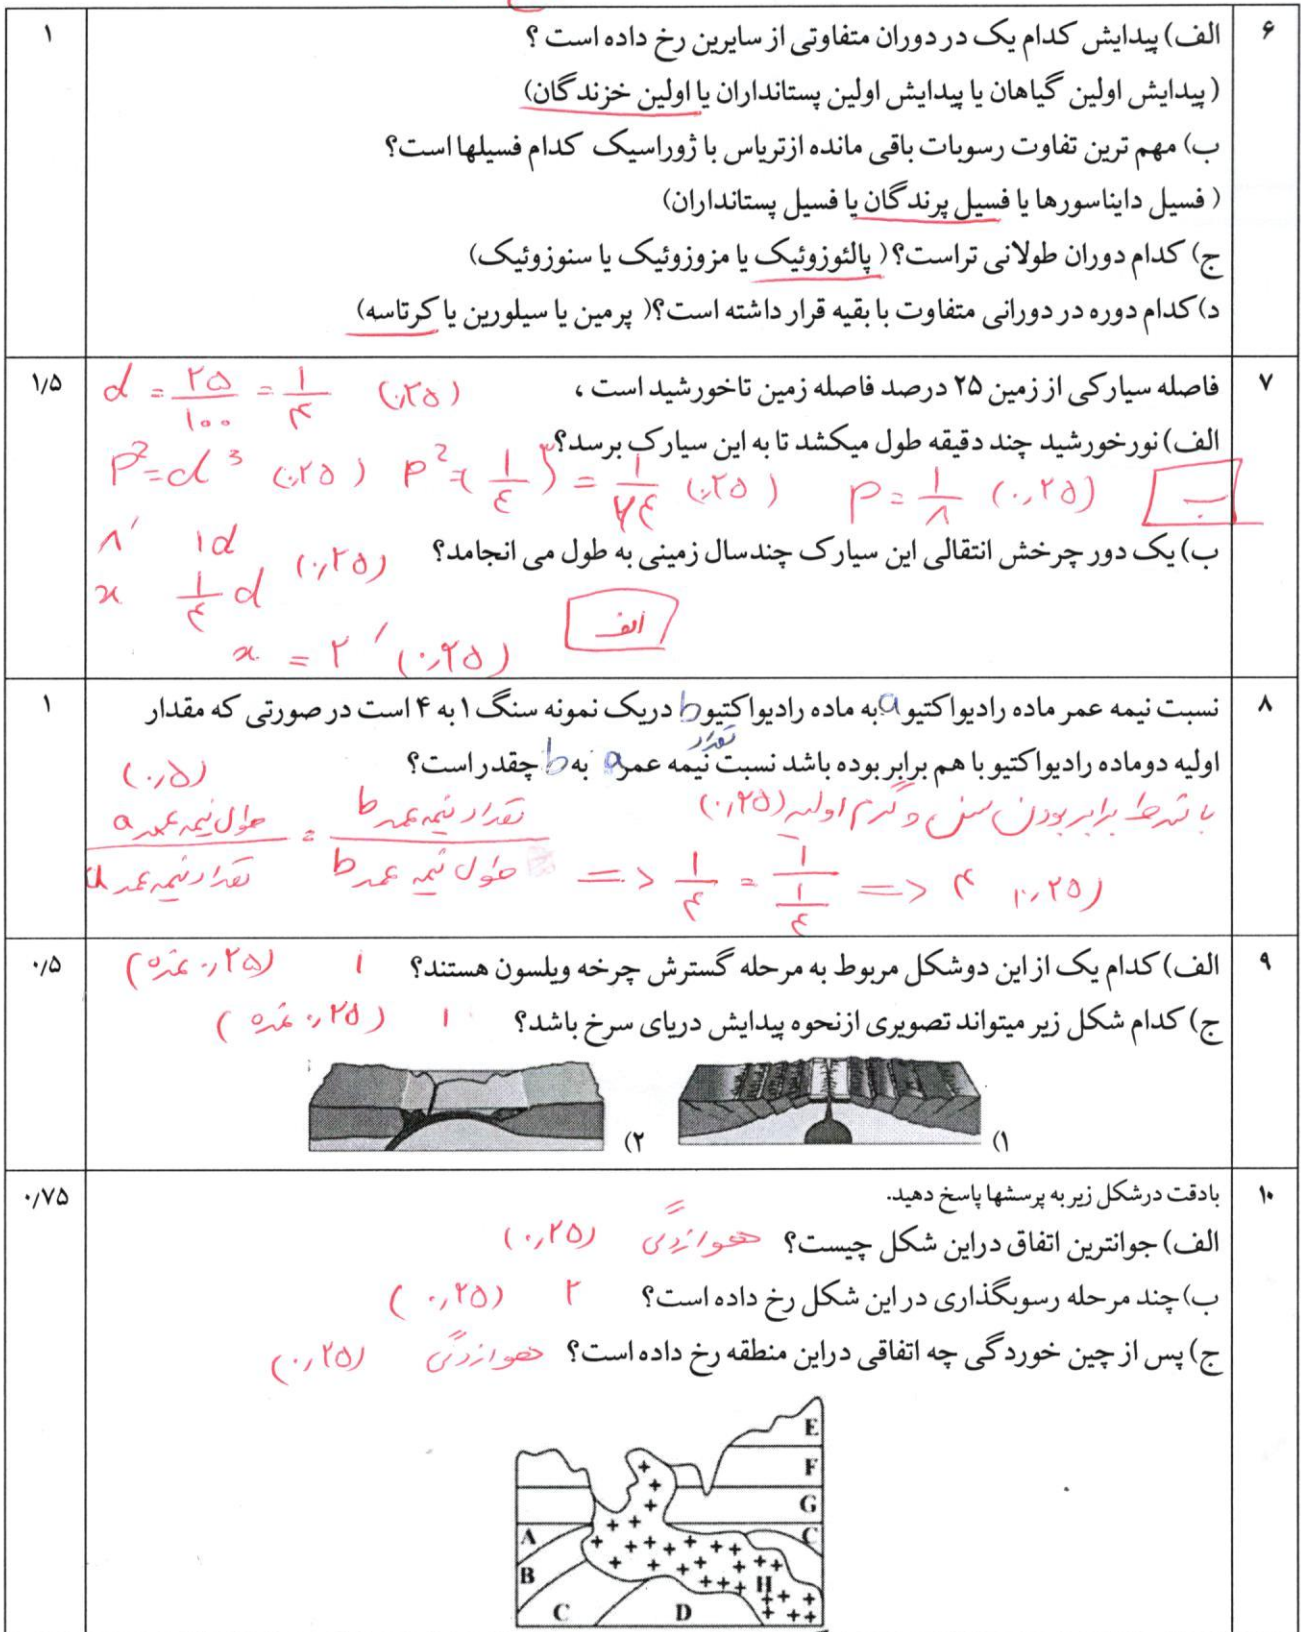 ۶
الف) پیدایش کدام یک در دوران متفاوتی از سایرین رخ داده است ؟
۱
( پیدایش اولین گیاهان یا پیدایش اولین پستانداران یا اولین خزندگان)
ب) مهم ترین تفاوت رسوبات باقی مانده ازتریاس با ژوراسیک کدام فسیلها است؟
( فسیل دایناسورها یا فسیل پرندگان یا فسیل پستانداران)
ج) کدام دوران طولانی تراست؟( پالئوزوئیک یا مزوزوئیک یا سنوزوئیک)
د)کدام دوره در دورانی متفاوت با بقیه قرار داشته است؟( پرمین یا سیلورین یا کرتاسه)
۷
فاصله سیارکی از زمین ۲۵ درصد فاصله زمین تاخورشید است ،
d = ۲۵/۱۰۰ = ۱/۴ (۰٫۲۵)
۱/۵
الف) نورخورشید چند دقیقه طول میکشد تا به این سیارک برسد؟
P² = d³ (۰٫۲۵) P² = (۱/۴)³ = ۱/۶۴ (۰٫۲۵) P = ۱/۸ (۰٫۲۵) ب
ب) یک دور چرخش انتقالی این سیارک چندسال زمینی به طول می انجامد؟
۸′ ۱d
x ۱/۴ d (۰٫۲۵)
الف
x = ۲′ (۰٫۲۵)
۸
نسبت نیمه عمر ماده رادیواکتیو a به ماده رادیواکتیو b دریک نمونه سنگ ۱ به ۴ است در صورتی که مقدار
۱
اولیه دوماده رادیواکتیو با هم برابر بوده باشد نسبت تعداد نیمه عمر a به b چقدر است؟
با شرط برابر بودن سن و گرم اولیه (۰٫۲۵)
(۰٫۵)
طول نیمه عمر a / تعداد نیمه عمر a = تعداد نیمه عمر b / طول نیمه عمر b => ۱/۴ = ۱/(۱/۴) => ۴ (۰٫۲۵)
۹
الف) کدام یک از این دوشکل مربوط به مرحله گسترش چرخه ویلسون هستند؟ ۱ (۰٫۲۵ نمره)
۰/۵
ج) کدام شکل زیر میتواند تصویری ازنحوه پیدایش دریای سرخ باشد؟ ۱ (۰٫۲۵ نمره)
۱)
۲)
۱۰
بادقت درشکل زیر به پرسشها پاسخ دهید.
۰/۷۵
الف) جوانترین اتفاق دراین شکل چیست؟ هوازدگی (۰٫۲۵)
ب) چند مرحله رسوبگذاری در این شکل رخ داده است؟ ۲ (۰٫۲۵)
ج) پس از چین خوردگی چه اتفاقی دراین منطقه رخ داده است؟ هوازدگی (۰٫۲۵)
E
F
G
A C
B H
C D